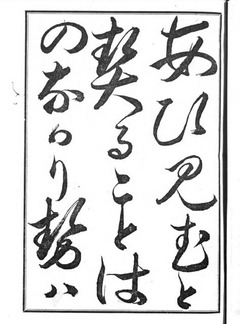 あひ見むと
契ることは
のなかり勢ハ